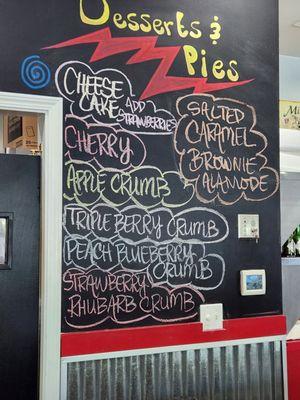 Desserts &
Pies
CHEESE
CAKE ADD
STRAWBERRIES
CHERRY
APPLE CRUMB
TRIPLE BERRY CRUMB
PEACH BLUEBERRY
CRUMB
STRAWBERRY
RHUBARB CRUMB
SALTED
CARAMEL
BROWNIE
ALAMODE